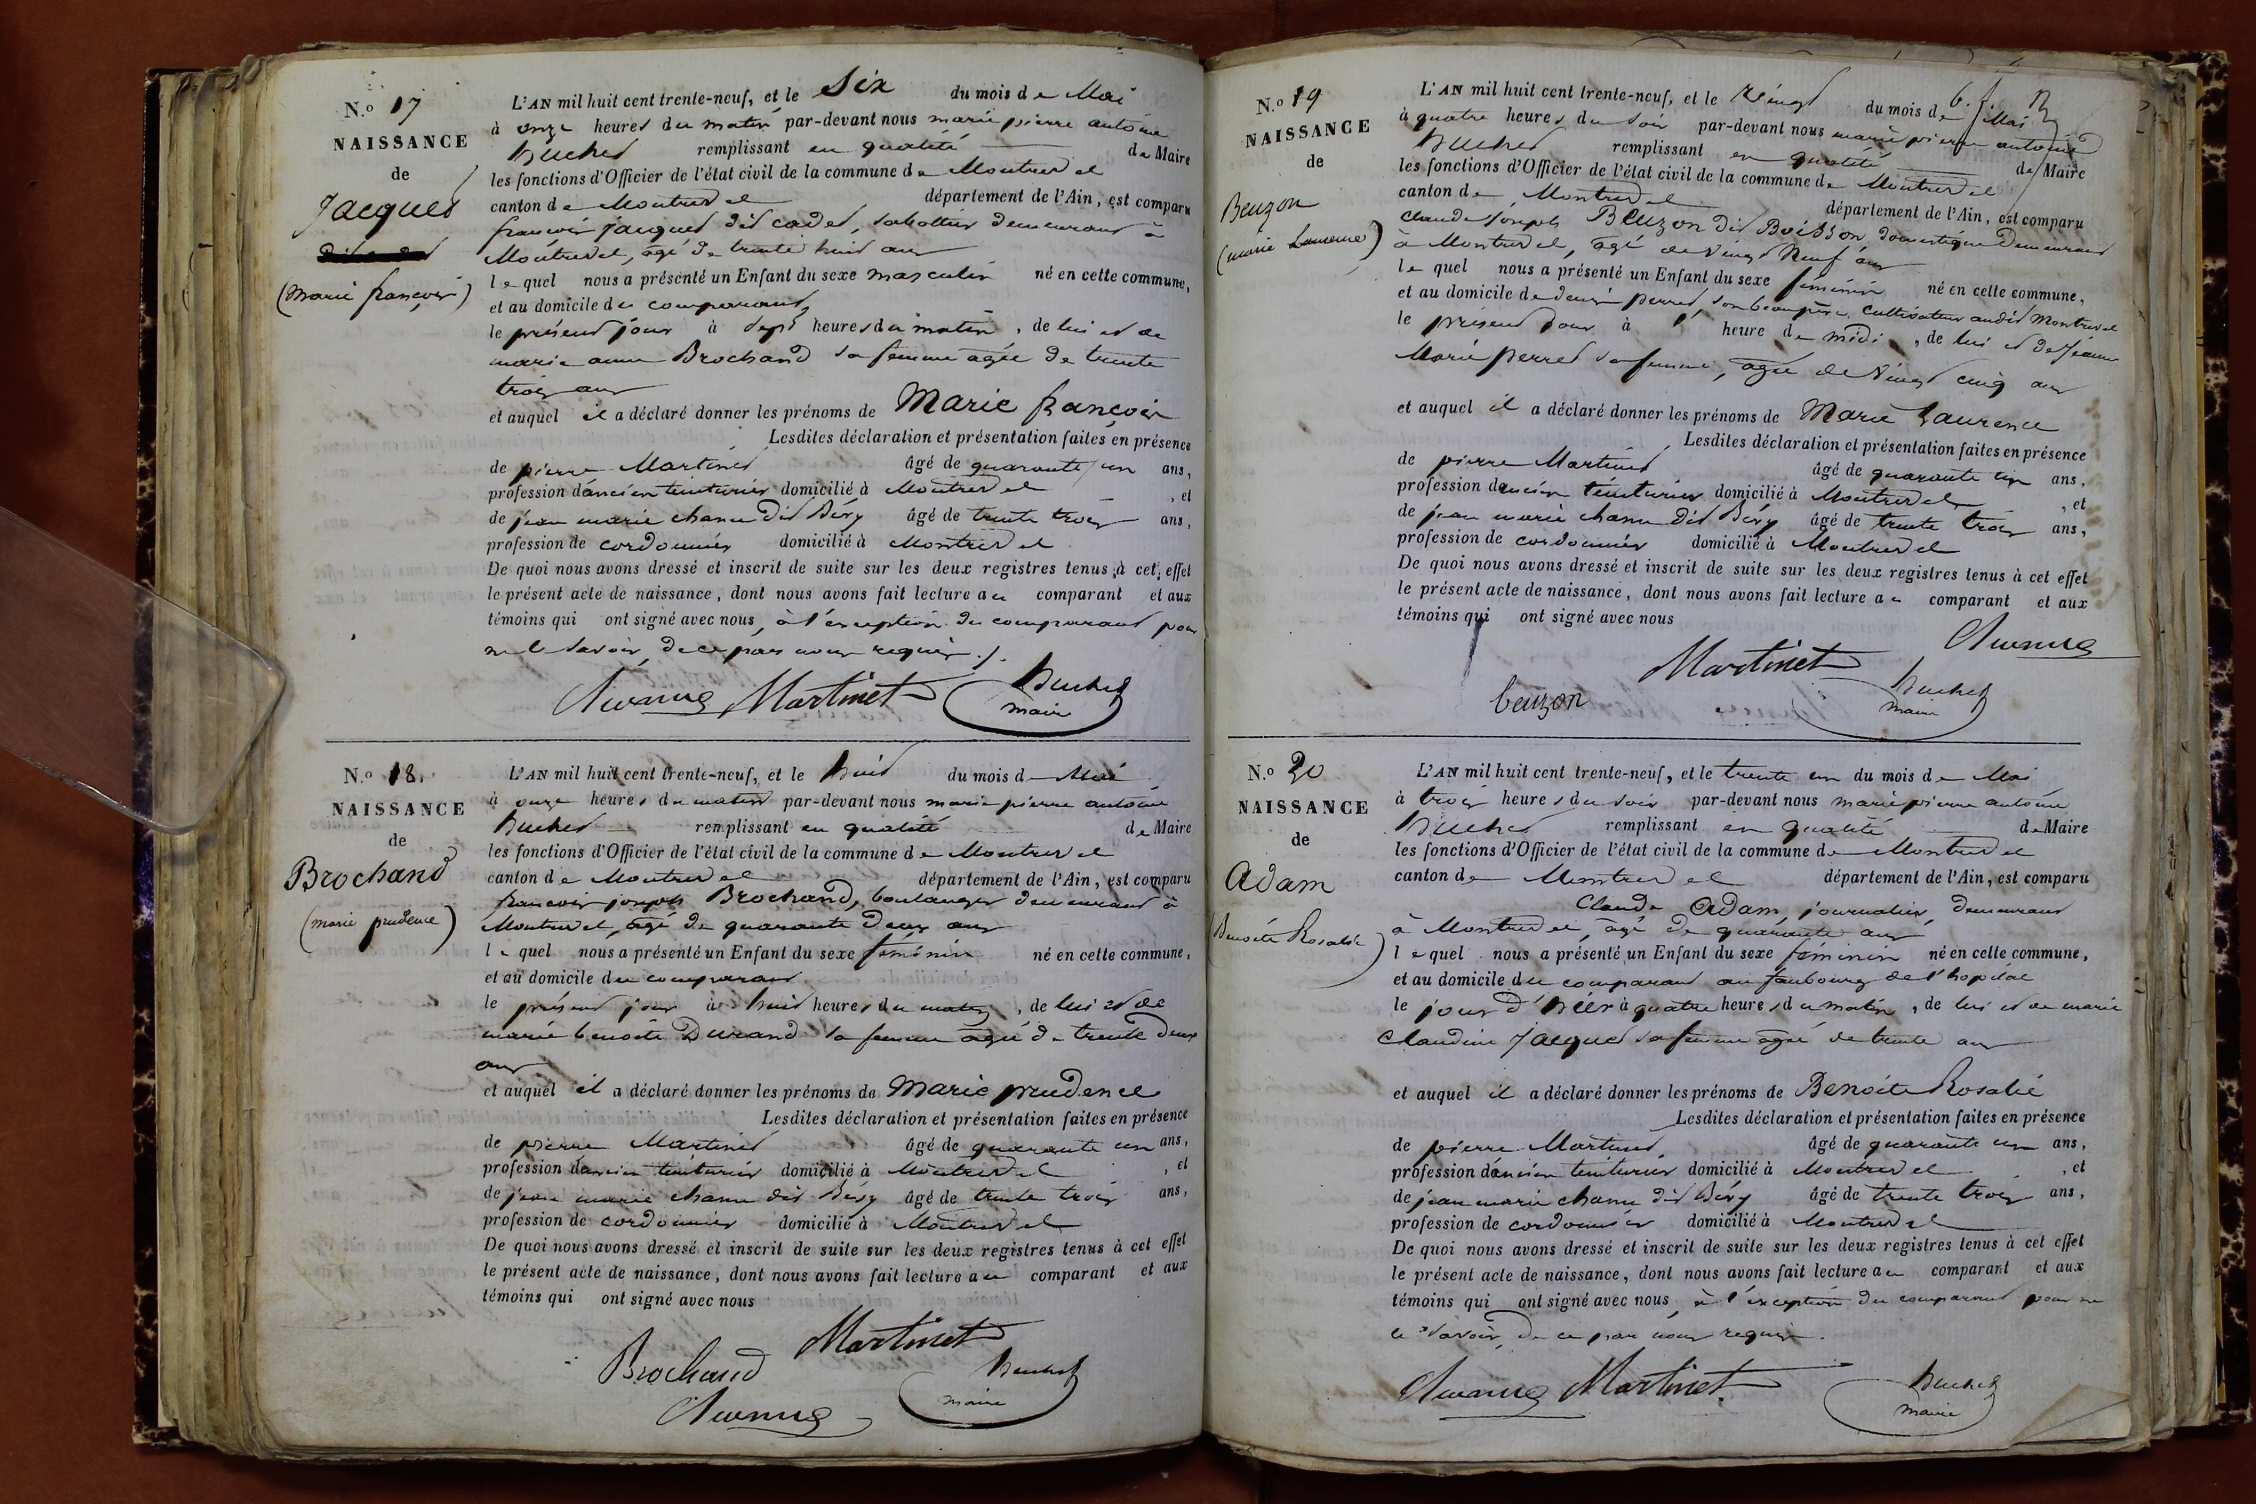 N.º 17
NAISSANCE
de
Jacques
(Marie françois)
L'AN mil huit cent trente-neuf, et le Six du mois de Mai
à onze heures du matin par-devant nous marie pierre antoine
Buchet remplissant en qualité de Maire
les fonctions d'Officier de l'état civil de la commune de Montrevel
canton de Montrevel département de l'Ain, est comparu
françois Jacques dit cadet, sabottier demeurant à
Montrevel, agé de trente huit ans
lequel nous a présenté un Enfant du sexe masculin né en cette commune,
et au domicile du comparant,
le présent jour à sept heures du matin, de lui et de
marie anne Brochand sa femme agée de trente
trois ans
et auquel il a déclaré donner les prénoms de Marie françois
Lesdites déclaration et présentation faites en présence
de pierre Martinet âgé de quarante un ans,
profession d'ancien teinturier domicilié à Montrevel, et
de jean marie chanu dit Béry âgé de trente trois ans,
profession de cordonnier domicilié à Montrevel
De quoi nous avons dressé et inscrit de suite sur les deux registres tenus à cet effet
le présent acte de naissance, dont nous avons fait lecture au comparant et aux
témoins qui ont signé avec nous, à l'exception du comparant pour
ne le savoir, de ce par nous requis ./.
Martinet Buchet
maire
N.º 18.
NAISSANCE
de
Brochand
(marie prudence)
L'AN mil huit cent trente-neuf, et le huit du mois de Mai
à onze heures du matin par-devant nous marie pierre antoine
Buchet remplissant en qualité de Maire
les fonctions d'Officier de l'état civil de la commune de Montrevel
canton de Montrevel département de l'Ain, est comparu
françois joseph Brochand, boulanger demeurant à
Montrevel, agé de quarante deux ans
lequel nous a présenté un Enfant du sexe féminin né en cette commune,
et au domicile du comparant
le présent jour à huit heures du matin, de lui et de
marie benoite Durand sa femme agée de trente deux
ans
et auquel il a déclaré donner les prénoms de Marie prudence
Lesdites déclaration et présentation faites en présence
de pierre Martinet âgé de quarante un ans,
profession d'ancien teinturier domicilié à Montrevel, et
de jean marie chanu dit Béry âgé de trente trois ans,
profession de cordonnier domicilié à Montrevel
De quoi nous avons dressé et inscrit de suite sur les deux registres tenus à cet effet
le présent acte de naissance, dont nous avons fait lecture au comparant et aux
témoins qui ont signé avec nous
Martinet
Brochand Buchet
maire
N.º 19
NAISSANCE
de
Beuzon
(marie Laurence)
L'AN mil huit cent trente-neuf, et le vingt du mois de Mai
à quatre heures du soir par-devant nous marie pierre antoine
Buchet remplissant en qualité de Maire
les fonctions d'Officier de l'état civil de la commune de Montrevel
canton de Montrevel département de l'Ain, est comparu
claude joseph Beuzon dit Boisson domestique demeurant
à Montrevel, agé de vingt neuf ans
lequel nous a présenté un Enfant du sexe féminin né en cette commune,
et au domicile de denis perret, son beaupère, cultivateur audit Montrevel
le présent jour à heure de midi, de lui et de jeanne
Marie perret sa femme, agée de vingt cinq ans
et auquel il a déclaré donner les prénoms de Marie Laurence
Lesdites déclaration et présentation faites en présence
de pierre Martinet âgé de quarante un ans,
profession d'ancien teinturier domicilié à Montrevel, et
de jean marie chanu dit Béry âgé de trente trois ans,
profession de cordonnier domicilié à Montrevel
De quoi nous avons dressé et inscrit de suite sur les deux registres tenus à cet effet
le présent acte de naissance, dont nous avons fait lecture au comparant et aux
témoins qui ont signé avec nous
Martinet
beuzon Buchet
maire
N.º 20
NAISSANCE
de
Adam
(Benoite Rosalie)
L'AN mil huit cent trente-neuf, et le trente un du mois de Mai
à trois heures du soir par-devant nous marie pierre antoine
Buchet remplissant en qualité de Maire
les fonctions d'Officier de l'état civil de la commune de Montrevel
canton de Montrevel département de l'Ain, est comparu
Claude Adam, journalier, demeurant
à Montrevel, agé de quarante ans
lequel nous a présenté un Enfant du sexe féminin né en cette commune,
et au domicile du comparant au faubourg de l'hopital
le jour d'hier à quatre heures du matin, de lui et de marie
Claudine Jacquet sa femme agée de trente ans
et auquel il a déclaré donner les prénoms de Benoite Rosalie
Lesdites déclaration et présentation faites en présence
de pierre Martinet âgé de quarante un ans,
profession d'ancien teinturier domicilié à Montrevel, et
de jean marie chanu dit Béry âgé de trente trois ans,
profession de cordonnier domicilié à Montrevel
De quoi nous avons dressé et inscrit de suite sur les deux registres tenus à cet effet
le présent acte de naissance, dont nous avons fait lecture au comparant et aux
témoins qui ont signé avec nous, à l'exception du comparant pour ne
le savoir, de ce par nous requis.
Martinet Buchet
maire